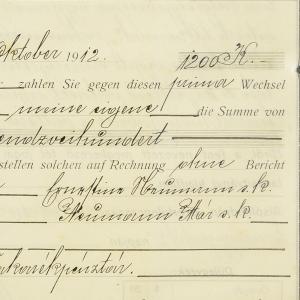 ktober 1912. 1200 K.
zahlen Sie gegen diesen prima Wechsel
meine eigene die Summe von
endzweihundert
stellen solchen auf Rechnung ohne Bericht
Ernestine Neumann s.k.
Neumann Mór s.k.
takarékpénztár.